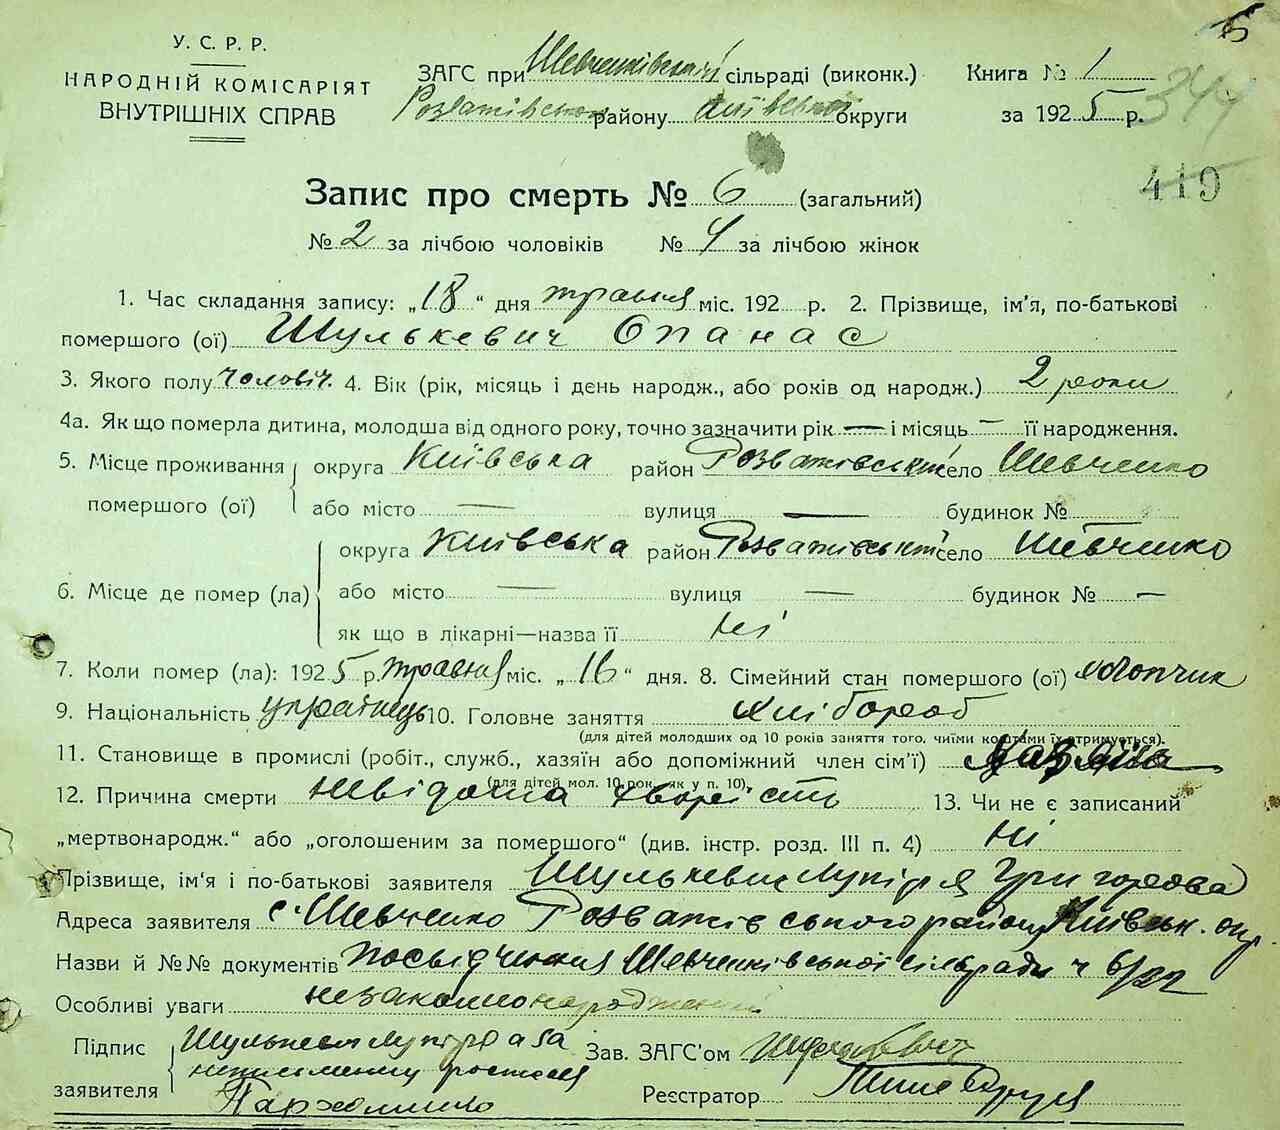 У. С. Р. Р.
НАРОДНІЙ КОМІСАРІЯТ
ВНУТРІШНІХ СПРАВ
ЗАГС при Шевченківській сільраді (виконк.)
Розважівськом району Київської округи
Книга № 1
за 1925 р.
5
344
419
Запис про смерть № 6 (загальний)
№ 2 за лічбою чоловіків № 4 за лічбою жінок
1. Час складання запису: „18“ дня травня міс. 192 р. 2. Прізвище, ім'я, по-батькові
помершого (ої) Шулькевич Опанас
3. Якого полу чоловіч. 4. Вік (рік, місяць і день народж., або років од народж.) 2 роки
4а. Як що померла дитина, молодша від одного року, точно зазначити рік — і місяць — її народження.
5. Місце проживання помершого (ої) округа Київська район Розважівський село Шевченко
або місто — вулиця — будинок №
6. Місце де помер (ла) округа Київська район Розважівський село Шевченко
або місто — вулиця — будинок № —
як що в лікарні—назва її Ні
7. Коли помер (ла): 1925 р. травня міс. „16“ дня. 8. Сімейний стан помершого (ої) хлопчик
9. Національність українець 10. Головне заняття хлібороб
(для дітей молодших од 10 років заняття того, чиїми коштами їх отримується).
11. Становище в промислі (робіт., служб., хазяїн або допоміжний член сім'ї) хазяїна
(для дітей мол. 10 рок. як у п. 10).
12. Причина смерти невідома 13. Чи не є записаний
„мертвонародж.“ або „оголошеним за помершого“ (див. інстр. розд. III п. 4) Ні
Прізвище, ім'я і по-батькові заявителя Шулькевич Лукіря Григорова
Адреса заявителя с. Шевченко Розважівського району Київськ. окр.
Назви й №№ документів посвідчення Шевченківської сільради ч 6/32
Особливі уваги незаконнонароджений
Підпис заявителя Шулькевич
неписьменну
Пархоменко
Зав. ЗАГС'ом
Реєстратор